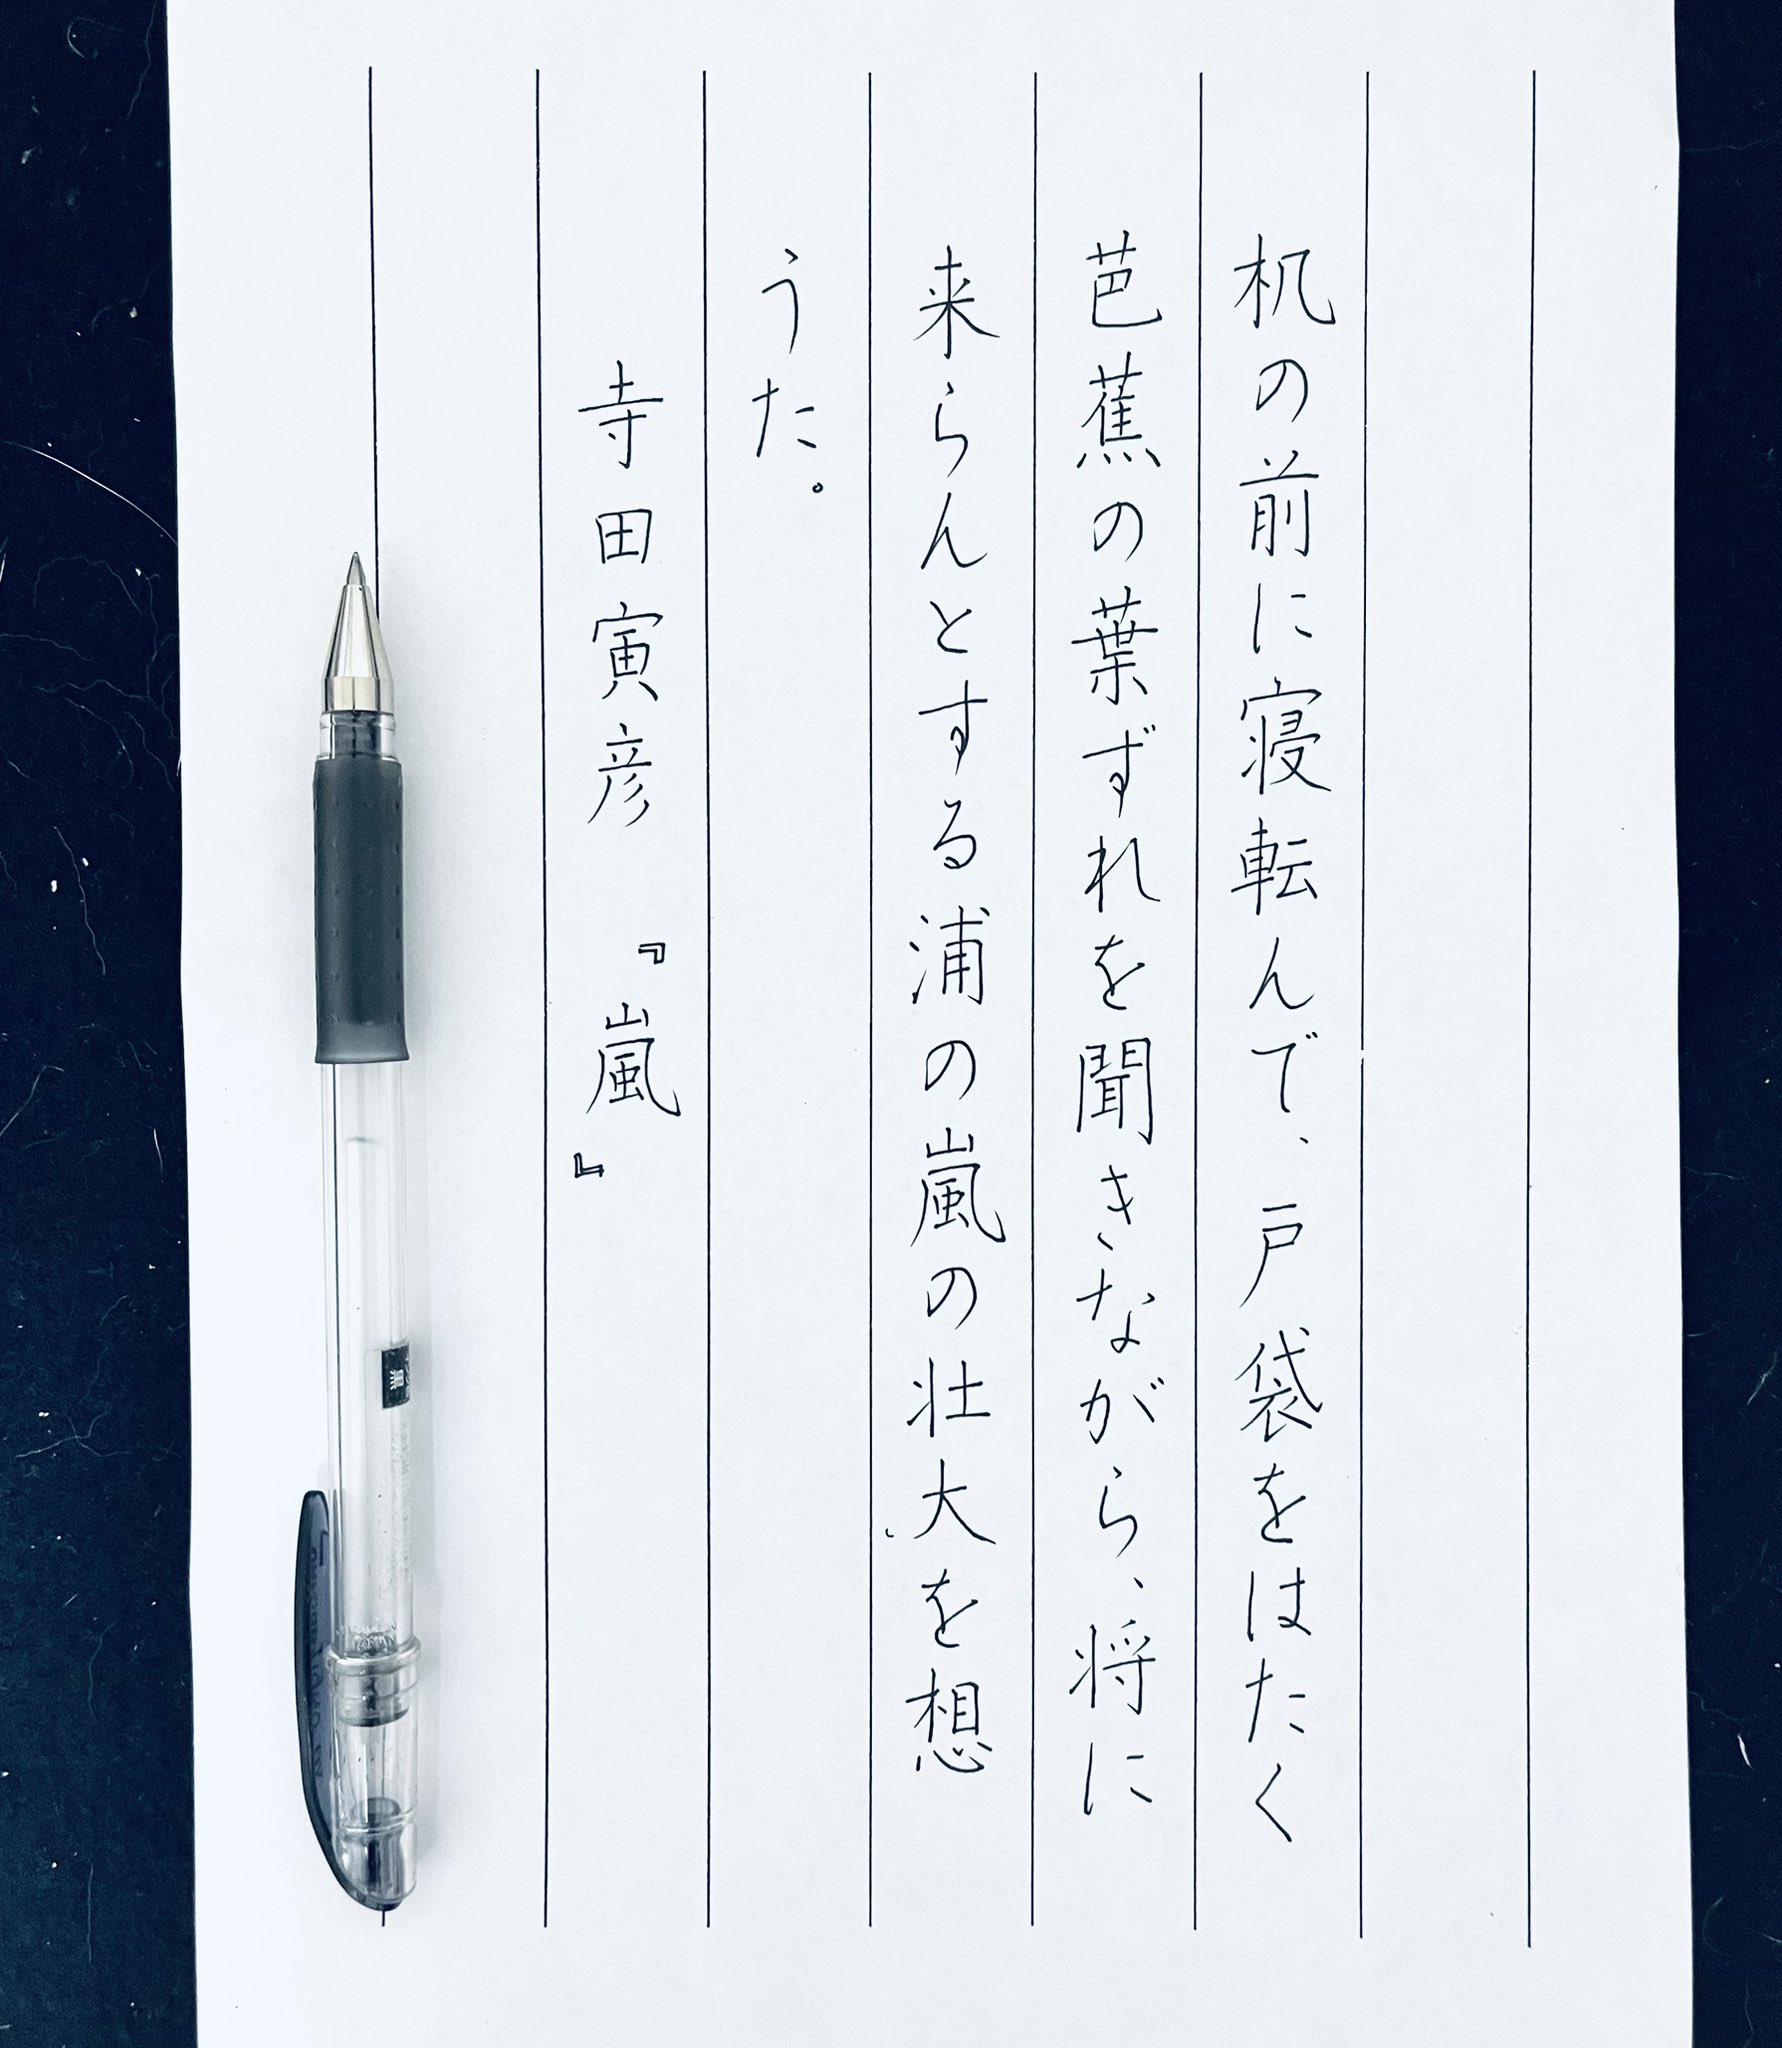 机の前に寝転んで、戸袋をはたく
芭蕉の葉ずれを聞きながら、将に
来らんとする浦の嵐の壮大を想
うた。
寺田寅彦 『嵐』